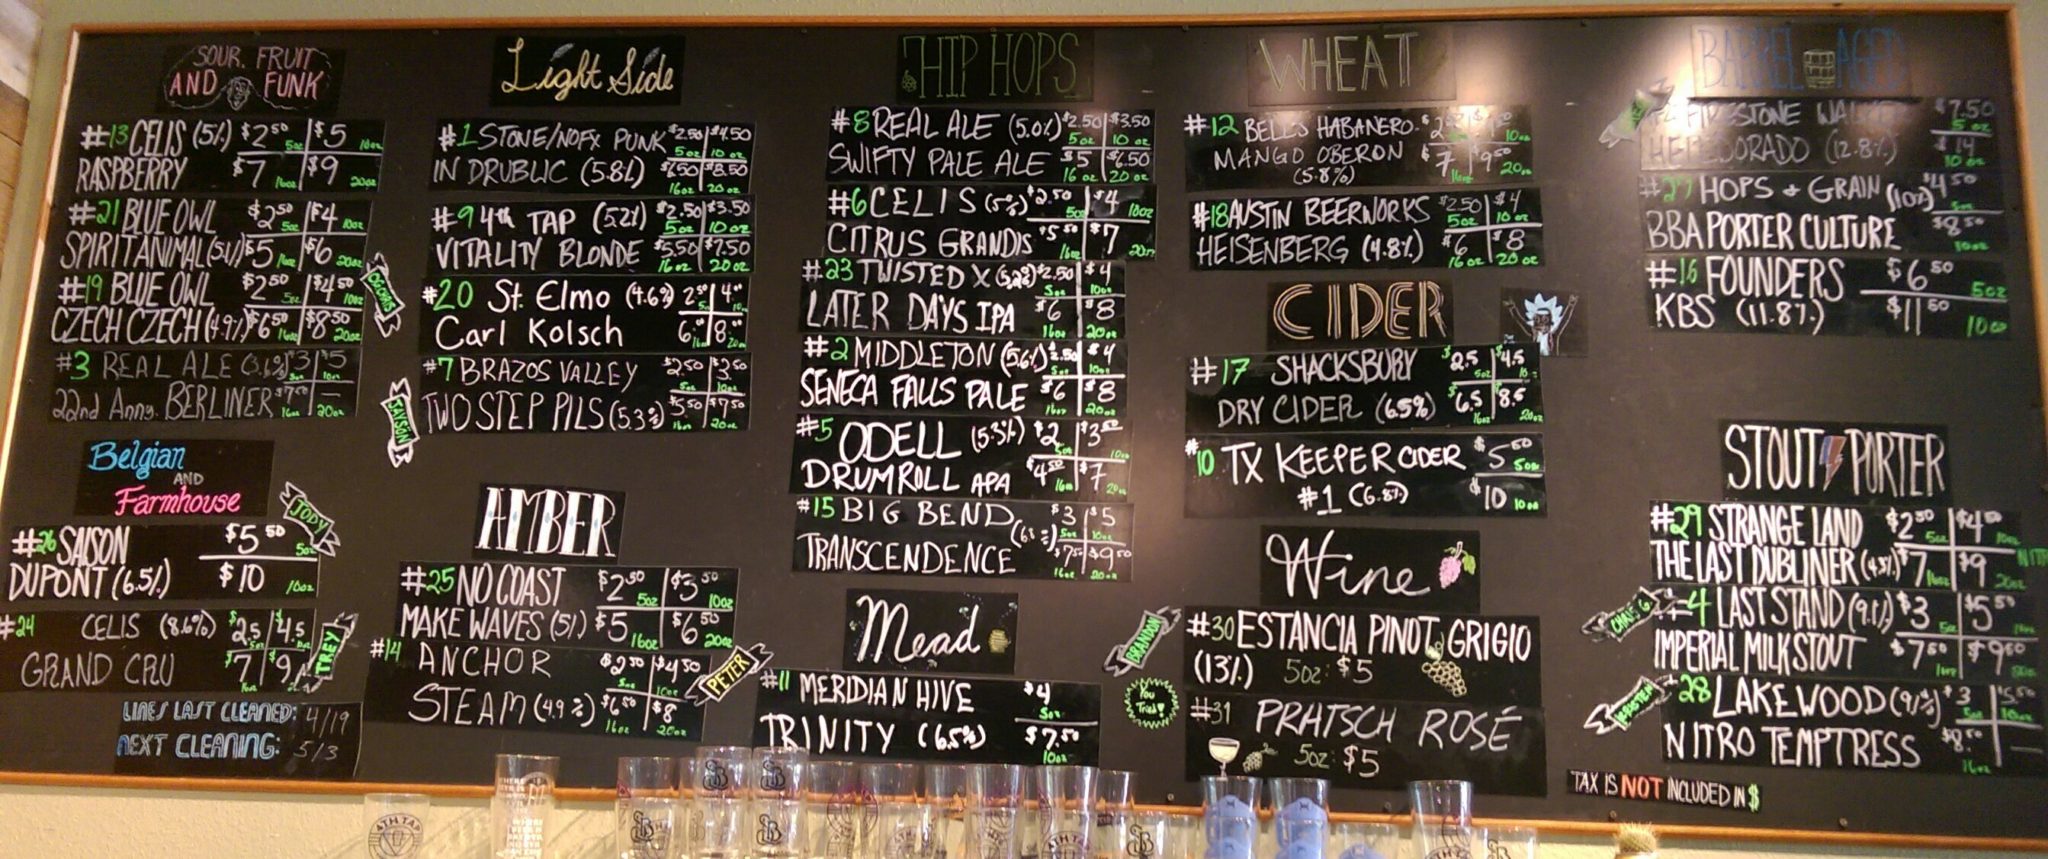 SOUR, FRUIT
AND FUNK
#13 CELIS (5%) $2.50 5oz $5 10oz
RASPBERRY $7 16oz $9 20oz
#21 BLUE OWL $2.50 5oz $4 10oz
SPIRIT ANIMAL (5.1%) $5 16oz $6 20oz
#19 BLUE OWL $2.50 5oz $4.50 10oz
CZECH CZECH (4.9%) $6.50 16oz $8.50 20oz
#3 REAL ALE (3.6%) $3 5oz $5 10oz
22nd Anny. BERLINER $7.50 16oz — 20oz
Belgian
AND
Farmhouse
#26 SAISON $5.50 5oz
DUPONT (6.5%) $10 10oz
#24 CELIS (8.6%) $2.5 5oz $4.5
GRAND CRU $7 16oz $9
LINES LAST CLEANED: 4/19
NEXT CLEANING: 5/3
JODY
TREY
Light Side
#1 STONE/NOFX PUNK $2.50 5oz $4.50 10oz
IN DRUBLIC (5.8%) $6.50 16oz $8.50 20oz
#9 4th TAP (5.2%) $2.50 5oz $3.50 10oz
VITALITY BLONDE $5.50 16oz $7.50 20oz
#20 St. Elmo (4.6%) 2.50 5oz 4.00
Carl Kolsch 6.00 16oz 8.00 20oz
#7 BRAZOS VALLEY $2.50 5oz $3.50 10oz
TWO STEP PILS (5.3%) $5.50 16oz $7.50 20oz
JAYSON
AMBER
#25 NO COAST $2.50 5oz $3.50 10oz
MAKE WAVES (5%) $5 16oz $6.50 20oz
#14 ANCHOR $2.50 5oz $4.50 10oz
STEAM (4.9%) $6.50 16oz $8 20oz
PETER
HIP HOPS
#8 REAL ALE (5.0%) $2.50 5oz $3.50 10oz
SWIFTY PALE ALE $5 16oz $6.50 20oz
#6 CELIS (5%) $2.50 5oz $4 10oz
CITRUS GRANDIS $5.50 16oz $7 20oz
#23 TWISTED X (5.2%) $2.50 5oz $4 10oz
LATER DAYS IPA $6 16oz $8 20oz
#2 MIDDLETON (5.6%) $2.50 5oz $4 10oz
SENECA FALLS PALE $6 16oz $8 20oz
#5 ODELL (5.3%) $2 5oz $3.50 10oz
DRUMROLL APA $4.50 16oz $7 20oz
#15 BIG BEND $3 5oz $5 10oz
TRANSCENDENCE $7.50 16oz $9.50 20oz
Mead
#11 MERIDIAN HIVE $4 5oz
TRINITY (6.5%) $7.50 10oz
WHEAT
#12 BELL'S HABANERO- 10oz
MANGO OBERON $7 16oz $9.50 20oz
(5.8%)
#18 AUSTIN BEERWORKS $2.50 5oz $4 10oz
HEISENBERG (4.8%) $6 16oz $8 20oz
CIDER
#17 SHACKSBURY $2.5 5oz $4.5
DRY CIDER (6.5%) $6.5 16oz $8.5 20oz
#10 TX KEEPER CIDER $5.50 5oz
#1 (6.8%) $10 10oz
Wine
BRANDON
#30 ESTANCIA PINOT GRIGIO
(13%) 5oz: $5
You
Tried!
#31 PRATSCH ROSÉ
5oz: $5
BARREL AGED
FIRESTONE WALKER $7.50 5oz
HELLDORADO (12.8%) $14 10oz
#27 HOPS + GRAIN (10%) $4.50 5oz
BBA PORTER CULTURE $8.50 10oz
#16 FOUNDERS $6.50 5oz
KBS (11.8%) $11.50 10oz
STOUT PORTER
#29 STRANGE LAND $2.50 5oz $4.50 10oz
THE LAST DUBLINER $7 16oz $9 20oz NITRO
CHRIS G
#4 LAST STAND $3 5oz $5.50
IMPERIAL MILK STOUT $7.50 16oz $9.50
#28 LAKEWOOD $3 5oz $5.50 10oz
NITRO TEMPTRESS $8.50 16oz —
TAX IS NOT INCLUDED IN $
4TH TAP